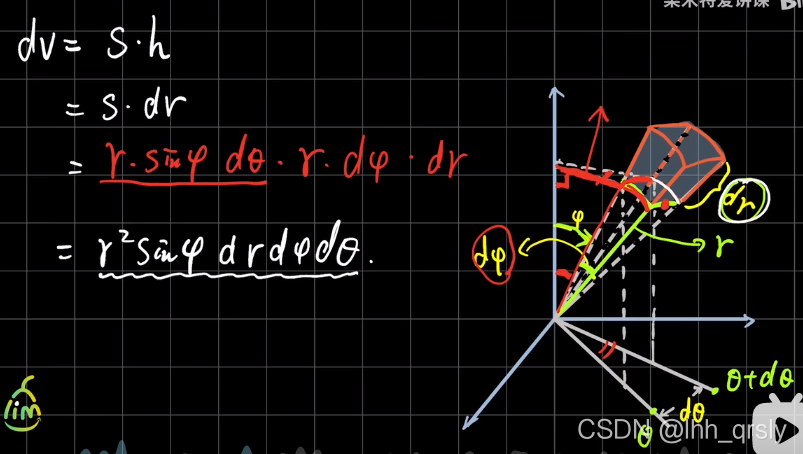 dv = s·h
= s·dr
= r·sinφ dθ·r·dφ·dr
= r²sinφ dr dφ dθ.
φ
dφ
dr
r
θ+dθ
dθ
θ
lim
CSDN @lhh_qrsly